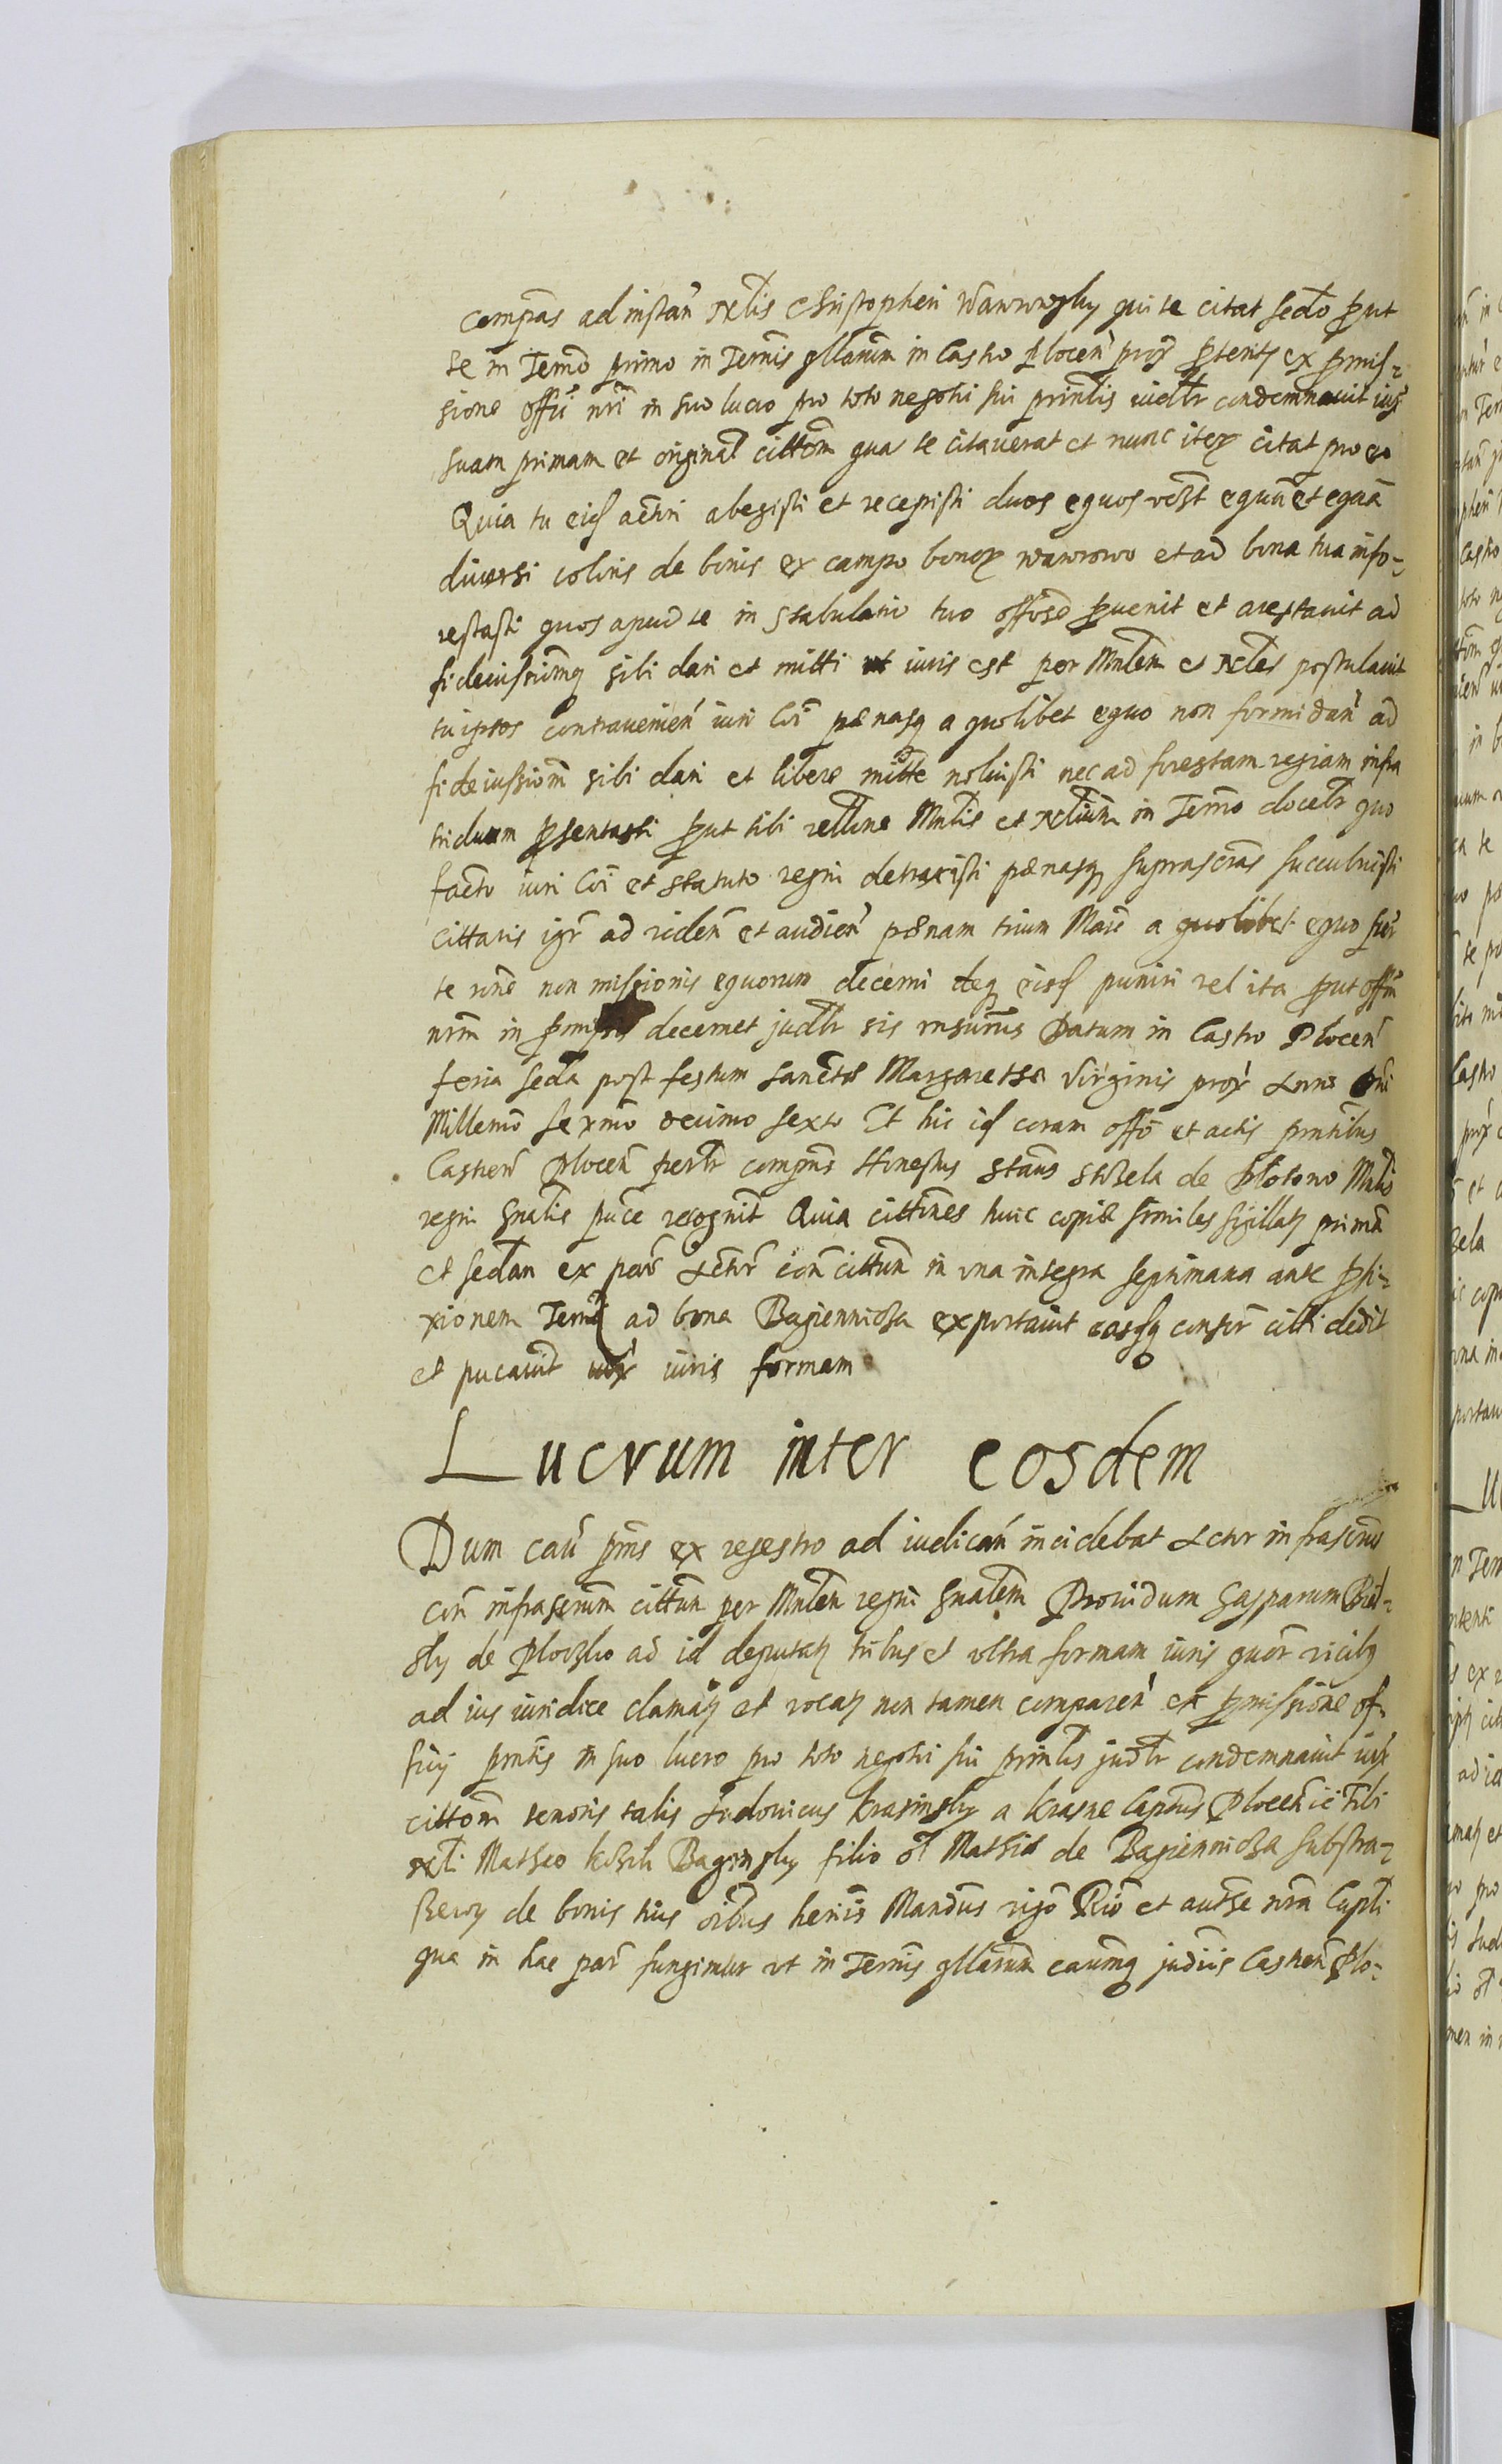 compãs ad instan̄ Nlis Christopheri Wawrowsky qui te citat sedo put
te in Termō primo in Termīs qllarum in Castro Plocen̄ prox̄ pterits ex pmis-
sione offii nrī in suo lucro pro toto negotii sui prinlis iudltr condemnauit iux̄
suam primam et original cittōm qua te citauerat et nunc iter citat pro eo
Quia tu eid actori abegisti et recepisti duos equos vdzt equū et equā
diuersi coloris de bonis ex campo bonor wawrowo et ad bona tua info-
restasti quos apud te in stabulario tuo offose puenit et arestauit ad
fideiussionēq sibi dari et mitti ut iuris est per Mnlem et Nles postulauit
tu ipsos contrauenien̄ iuri Cōi pænasq a quolibet equo non formidan̄ ad
fideiussionē sibi dari et libere mitte noluisti nec ad forestam regiam infra
triduum psentasti put tibi rellone Mnlis et Nlium in Termō docebr quo
facto iuri Cōi et statuto regni detraxisti pænasq suprascras succubuisti
cittaris igr ad viden̄ et audien̄ pænam trium Marc a quolibet equo sup
te rōne non missionis equorum decerni teq eisd puniri vel ita put offm
nrm in pmissis decernet judltr sis rnsurus Datum in Castro Plocen̄
feria seda post festum sanctæ Margarethæ Virginis prox̄ Anno Dni
Millemō sexmō decimo sexto Et hic id coram offō et actis pntibus
Castren̄ Plocen̄ psltr compns Honestus Stans Strzela de Plotowo Mnlis
regni gnalis puce recognit Quia cittōnes huic copiæ similes sigillats primā
et sedam ex parte Actoris con̄ cittum in vna integra septimana ante pfi-
xionem Termī ad bona Bagiennicza exportauit easdq consor citti dedit
et pucauit iux̄ iuris formam
Lucrum inter eosdem
Dum caū pns ex regestro ad iudican̄ incidebat Actor infrascrus
con̄ infrascrum cittum per Mnlem regni gnalem Prouidum Gasparum Biel-
sky de Ploczko ad id deputats tribus et vltra formam iuris quor vicibs
ad ius iuridice clamats et vocats non tamen comparen̄ ex pmissione of-
ficij pntis in suo lucro pro toto negotii sui prinlis judltr condemnauit iux̄
cittōm tenoris talis Ludouicus Krasinsky a Krasne Captūs Plocen̄ ic̄ Tibi
Nli Matheo Kozik Baginsky filio ol Mathiæ de Bagiennicza substra-
heror de bonis tuis oībus heriīs Mandūs vigō Riō et autste nrā Captli
qua in hac parte fungimur vt in Termīs qllarum caūmq judiīs Castren̄ Plo-